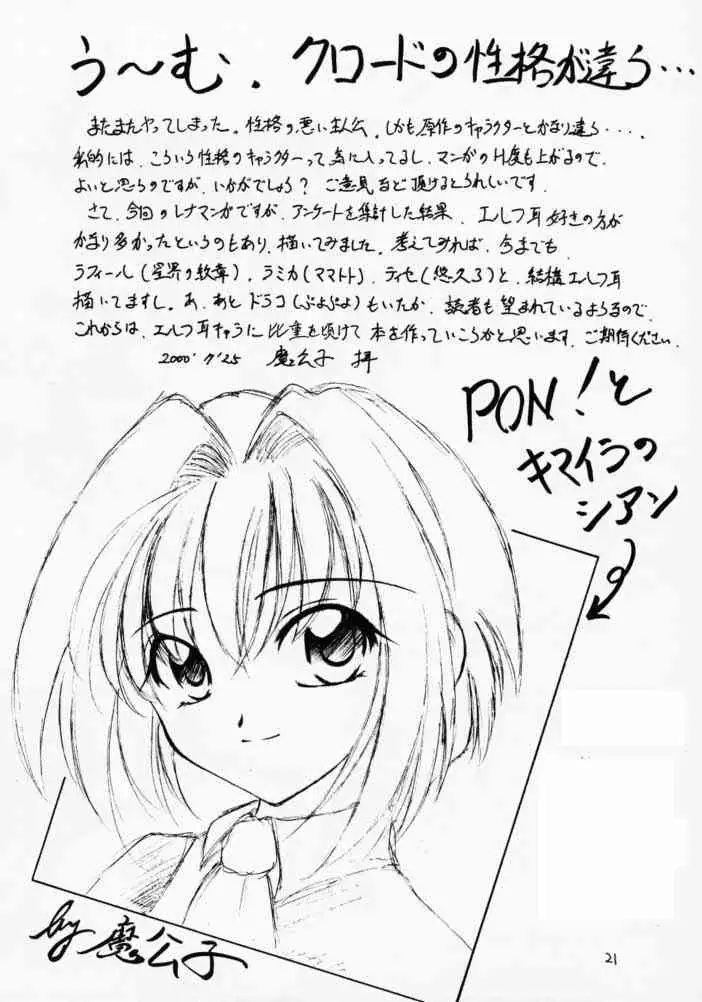 う～む、クロードの性格が違う…
またまたやってしまった。性格の悪い主人公。しかも原作のキャラクターとかなり違う・・・・。
私的には、こういう性格のキャラクターって気に入ってるし、マンガのH度も上がるので、
よいと思うのですが、いかがでしょう？ご意見など頂けるとうれしいです。
さて、今回のレナマンガですが、アンケートを集計した結果、エルフ耳好きの方が
かなり多かったというのもあり、描いてみました。考えてみれば、今までも
ラフィール（星界の紋章）、ラミカ（ママトト）、ティセ（悠久3）と、結構エルフ耳
描いてますし。あ、あとドラコ（ぷよぷよ）もいたか、読者も望まれているようなので、
これからは、エルフ耳キャラに比重を傾けて本を作っていこうかと思います。ご期待ください。
2000'7'25 魔公子 拝
PON！と
キマイラの
シアン
by 魔公子
21